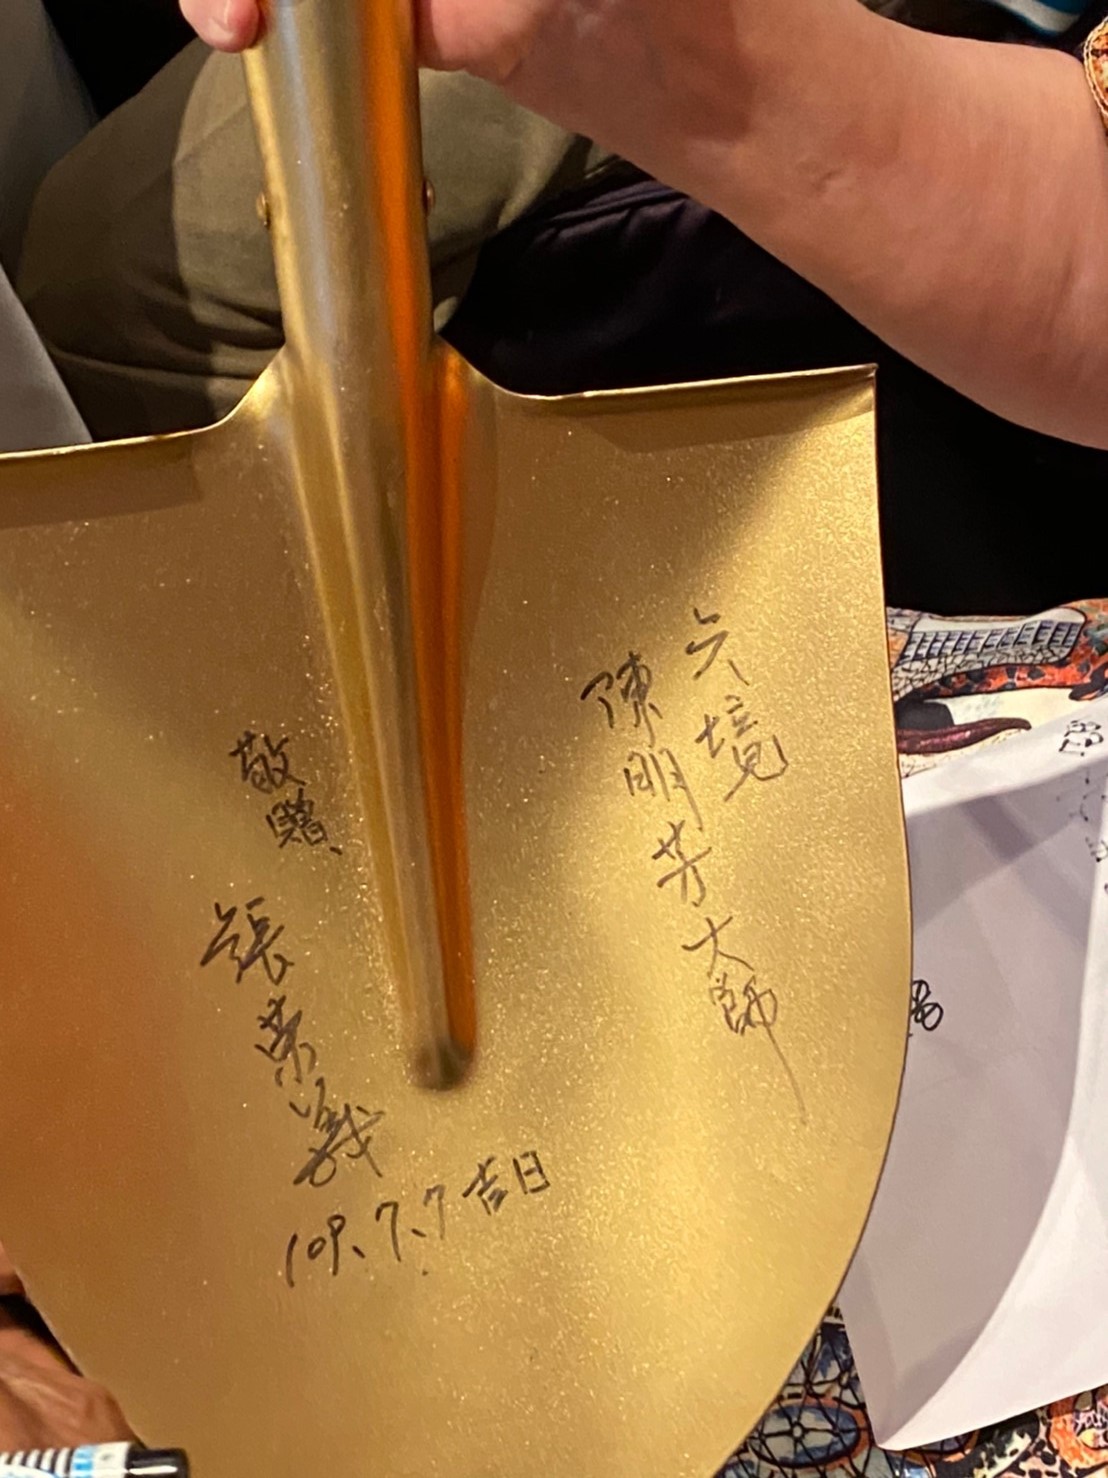 六境
陳明芳大師
敬贈
張榮義
109.7.7吉日